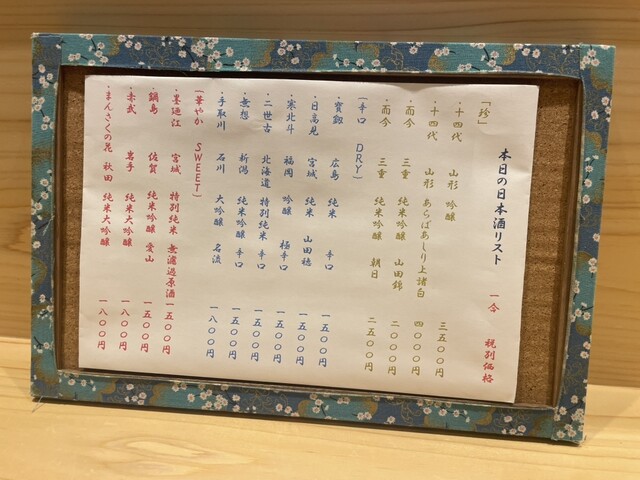 本日の日本酒リスト 一合 税別価格
「珍」
・十四代 山形 吟醸 三五〇〇円
・十四代 山形 あらばしり上諸白 四〇〇〇円
・而今 三重 純米吟醸 山田錦 二〇〇〇円
・而今 三重 純米吟醸 朝日 二五〇〇円
(辛口 DRY)
・寶劔 広島 純米 辛口 一五〇〇円
・日高見 宮城 純米 山田穂 一五〇〇円
・宗北斗 福岡 吟醸 極辛口 一五〇〇円
・二世古 北海道 特別純米 辛口 一五〇〇円
・無想 新潟 純米吟醸 辛口 一五〇〇円
・手取川 石川 大吟醸 名流 一八〇〇円
(華やか SWEET)
・墨廼江 宮城 特別純米 無濾過原酒 一五〇〇円
・鍋島 佐賀 純米吟醸 愛山 一五〇〇円
・赤武 岩手 純米大吟醸 一八〇〇円
・まんさくの花 秋田 純米大吟醸 一八〇〇円